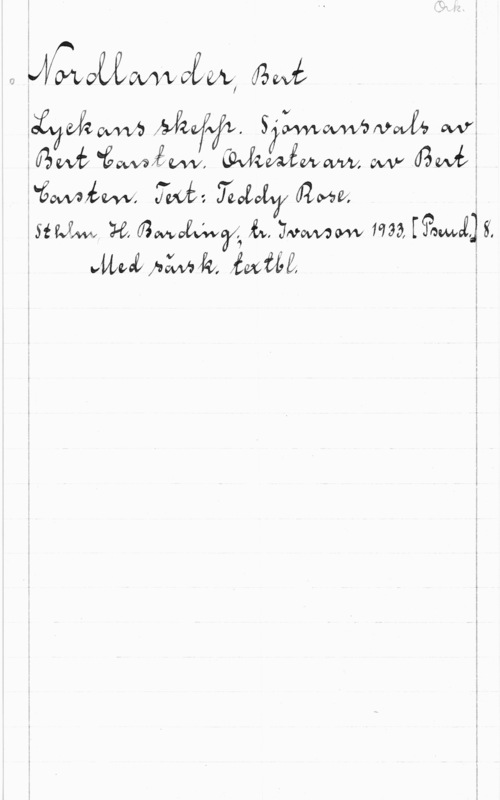 Ork.
Nordlander, Bert
Lyckans skepp. Sjömansvals av
Bert Carsten. Orkesterarr. av Bert
Carsten. Text: Teddy Rose.
Sthlm, H. Barding; tr. Ivarson 1933. [Pseud.] 8.
Med särsk. textbl.